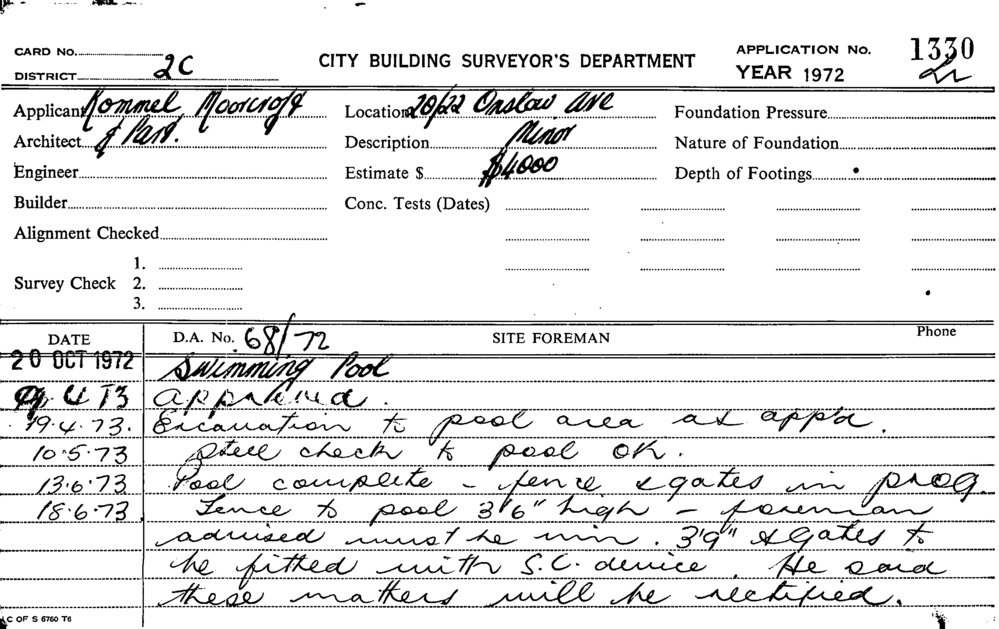 CARD No.
CITY BUILDING SURVEYOR'S DEPARTMENT
APPLICATION No. 1330
DISTRICT 2C
YEAR 1972
Applicant Rommel Moorcroft
Location 20/22 Onslow Ave
Foundation Pressure
Architect & Part.
Description Minor
Nature of Foundation
Engineer
Estimate $ $4000
Depth of Footings
Builder
Conc. Tests (Dates)
Alignment Checked
1.
Survey Check 2.
3.
DATE D.A. No. 68/72 SITE FOREMAN Phone
20 OCT 1972 Swimming Pool
4 73 approved.
19.4.73. Excavation to pool area as app'd.
10.5.73 Steel check to pool OK.
13.6.73 Pool complete - fence & gates in prog.
18.6.73 Fence to pool 3'6" high - foreman
advised must be min. 3'9" & Gates to
be fitted with S.C. device. He said
these matters will be rectified.
C OF S 6760 T6